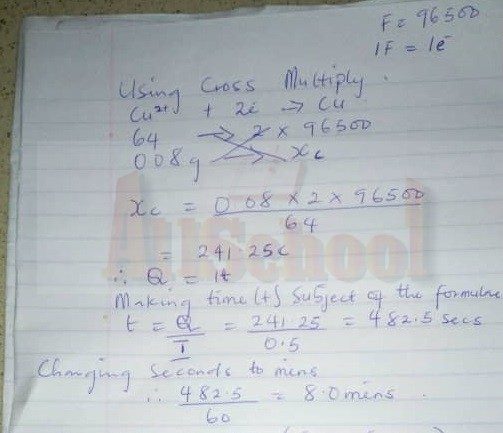 F = 96500
1F = 1e⁻
Using Cross Multiply.
Cu²⁺ + 2e → Cu
64 → 2 × 96500
0.08g → Xc
Xc = 0.08 × 2 × 96500
64
= 241.25c
∴ Q = It
Making time (t) Subject of the formulae
t = Q = 241.25 = 482.5 secs
I 0.5
Changing Seconds to mins
∴ 482.5 = 8.0mins.
60
AllSchool